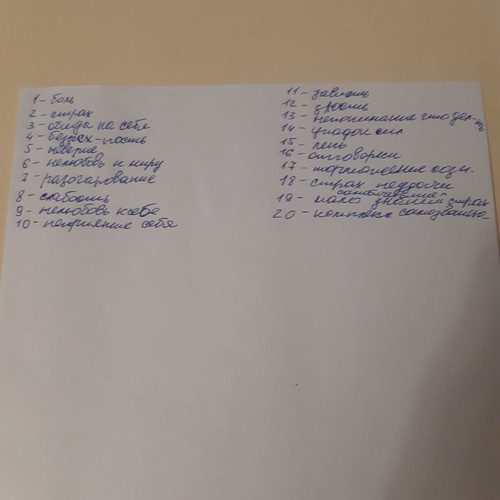 1 - боль
2 - страх
3 - обида на себя
4 - безысх-ность
5 - неверие
6 - нелюбовь к миру
7 - разочарование
8 - слабость
9 - нелюбовь к себе
10 - неприятие себя
11 - зависть
12 - злость
13 - непонимание что дел-
14 - упадок сил
15 - лень
16 - отговорки
17 -
18 - страх неудачи
19 - мало знаний страх
20 - комплекс самозванца